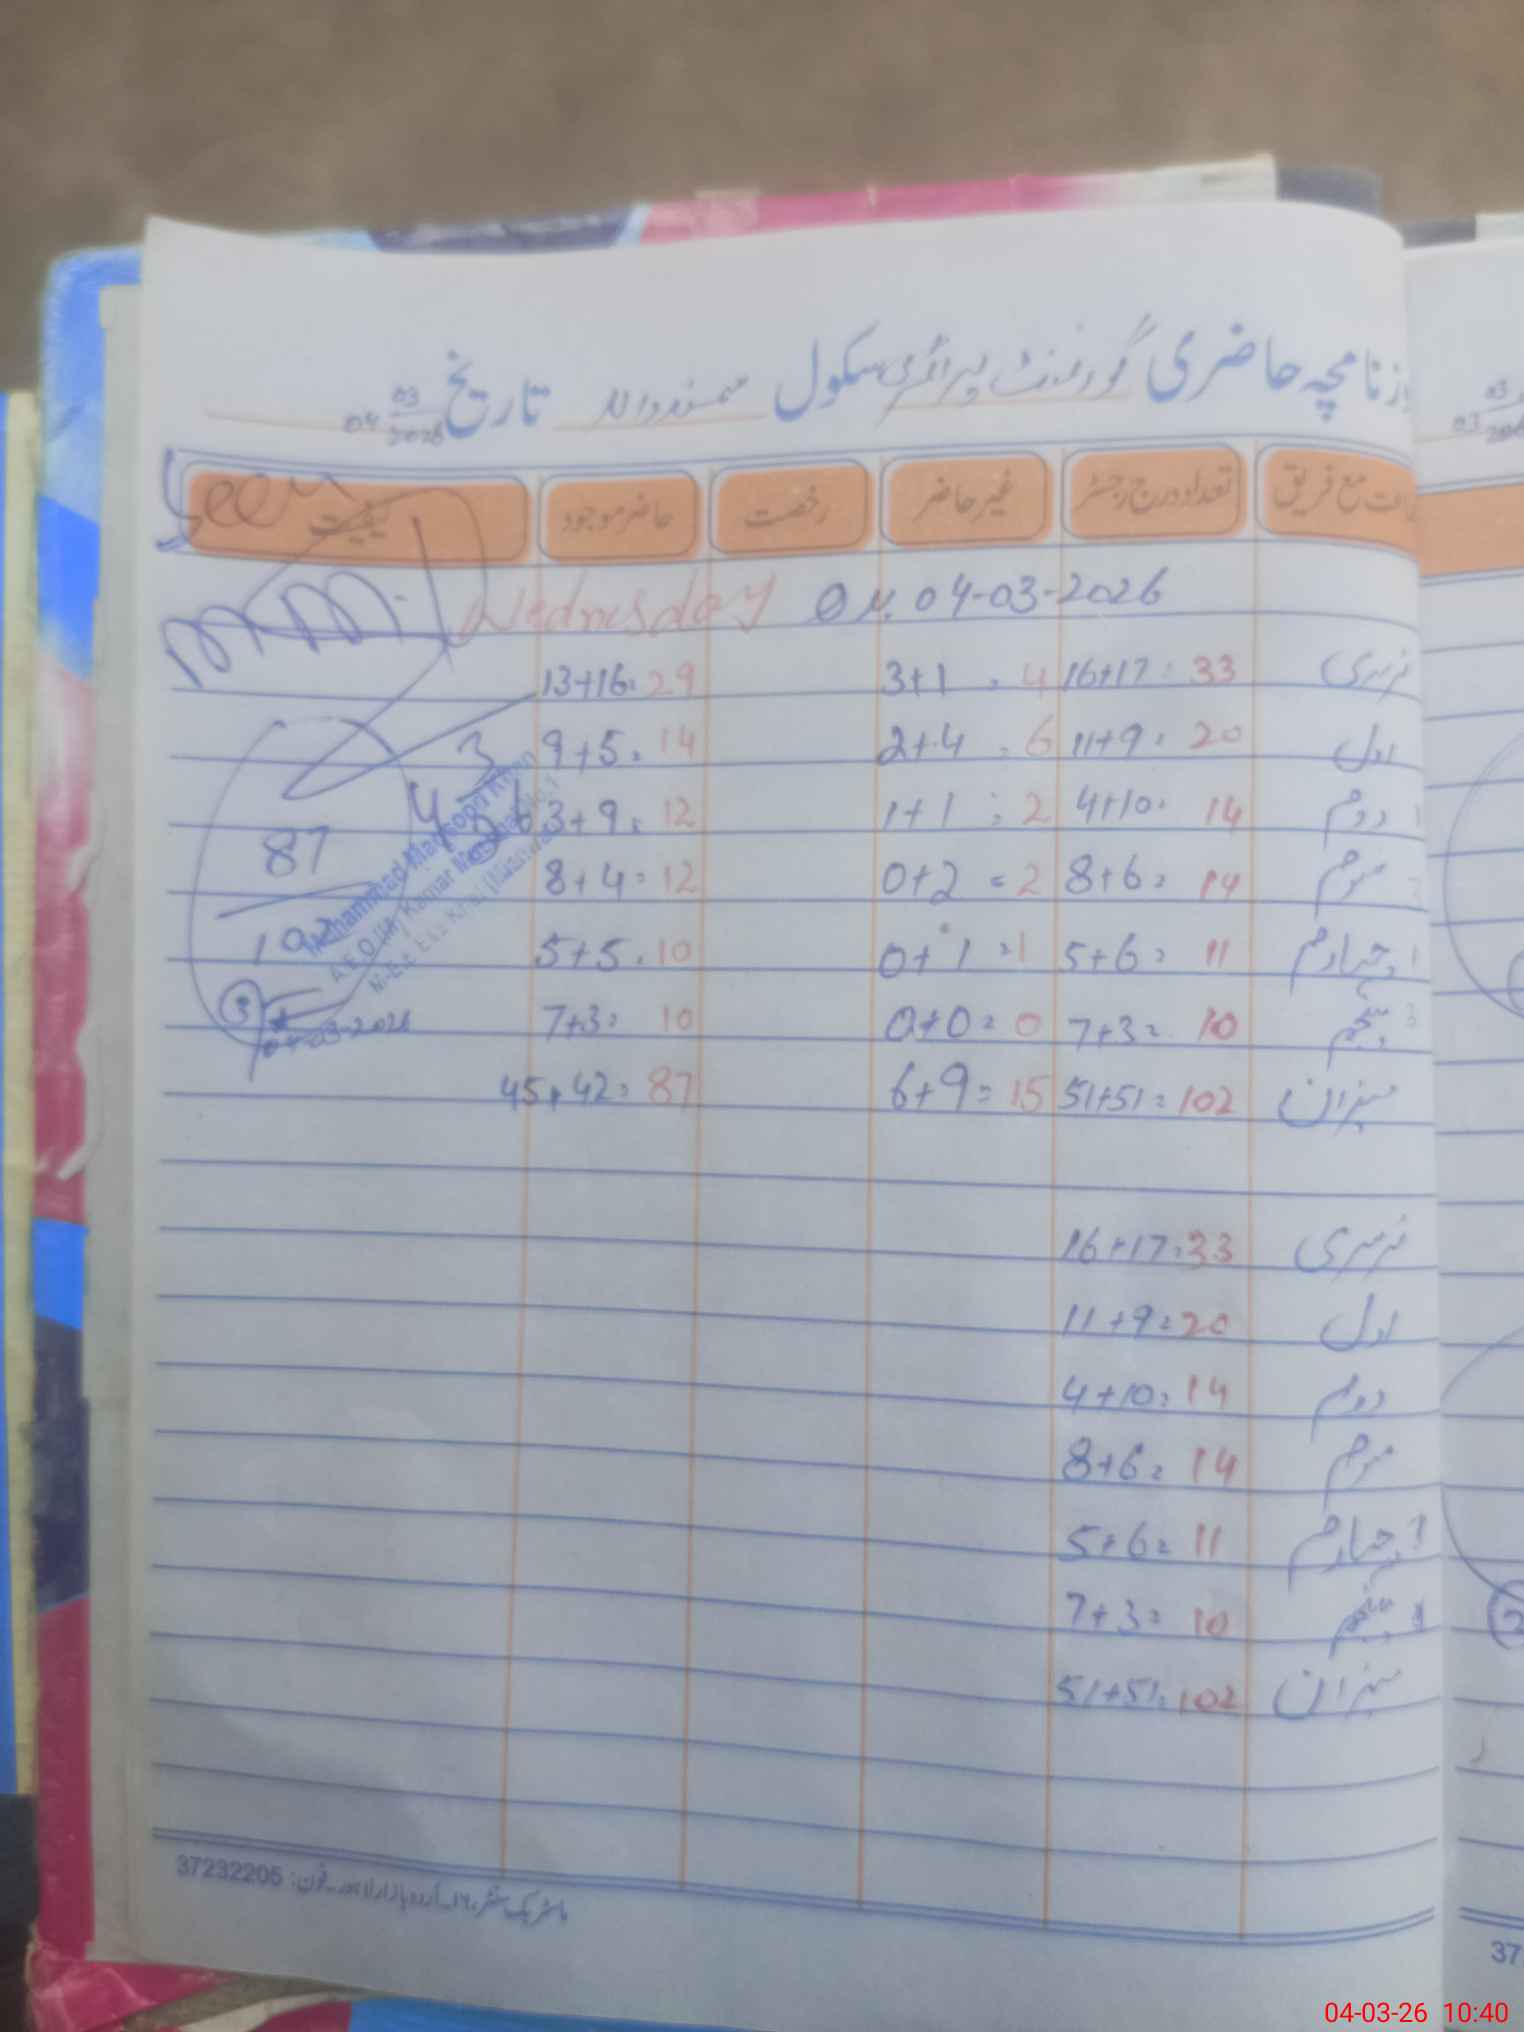 روزنامچہ حاضری گورنمنٹ پرائمری سکول تاریخ 04 03 2026
جماعت مع فریق تعداد درج رجسٹر غیر حاضر رخصت حاضر موجود کیفیت
04-03-2026 Wednesday
نرسری 16+17=33 3+1=4 13+16=29
اول 11+9=20 2+4=6 9+5=14
دوم 4+10=14 1+1=2 3+9=12
سوم 8+6=14 0+2=2 8+4=12
چہارم 5+6=11 0+1=1 5+5=10
پنجم 7+3=10 0+0=0 7+3=10
میزان 51+51=102 6+9=15 45+42=87
Seen
87
102
3
04-03-2026
Muhammad Mansoor Khan
A.E.O (M) Kamar
نرسری 16+17=33
اول 11+9=20
دوم 4+10=14
سوم 8+6=14
چہارم 5+6=11
پنجم 7+3=10
میزان 51+51=102
ماسٹر بک سنٹر، ۱۶۔اردو بازار لاہور۔فون: 37232205
03
03 2026
2
37
04-03-26 10:40